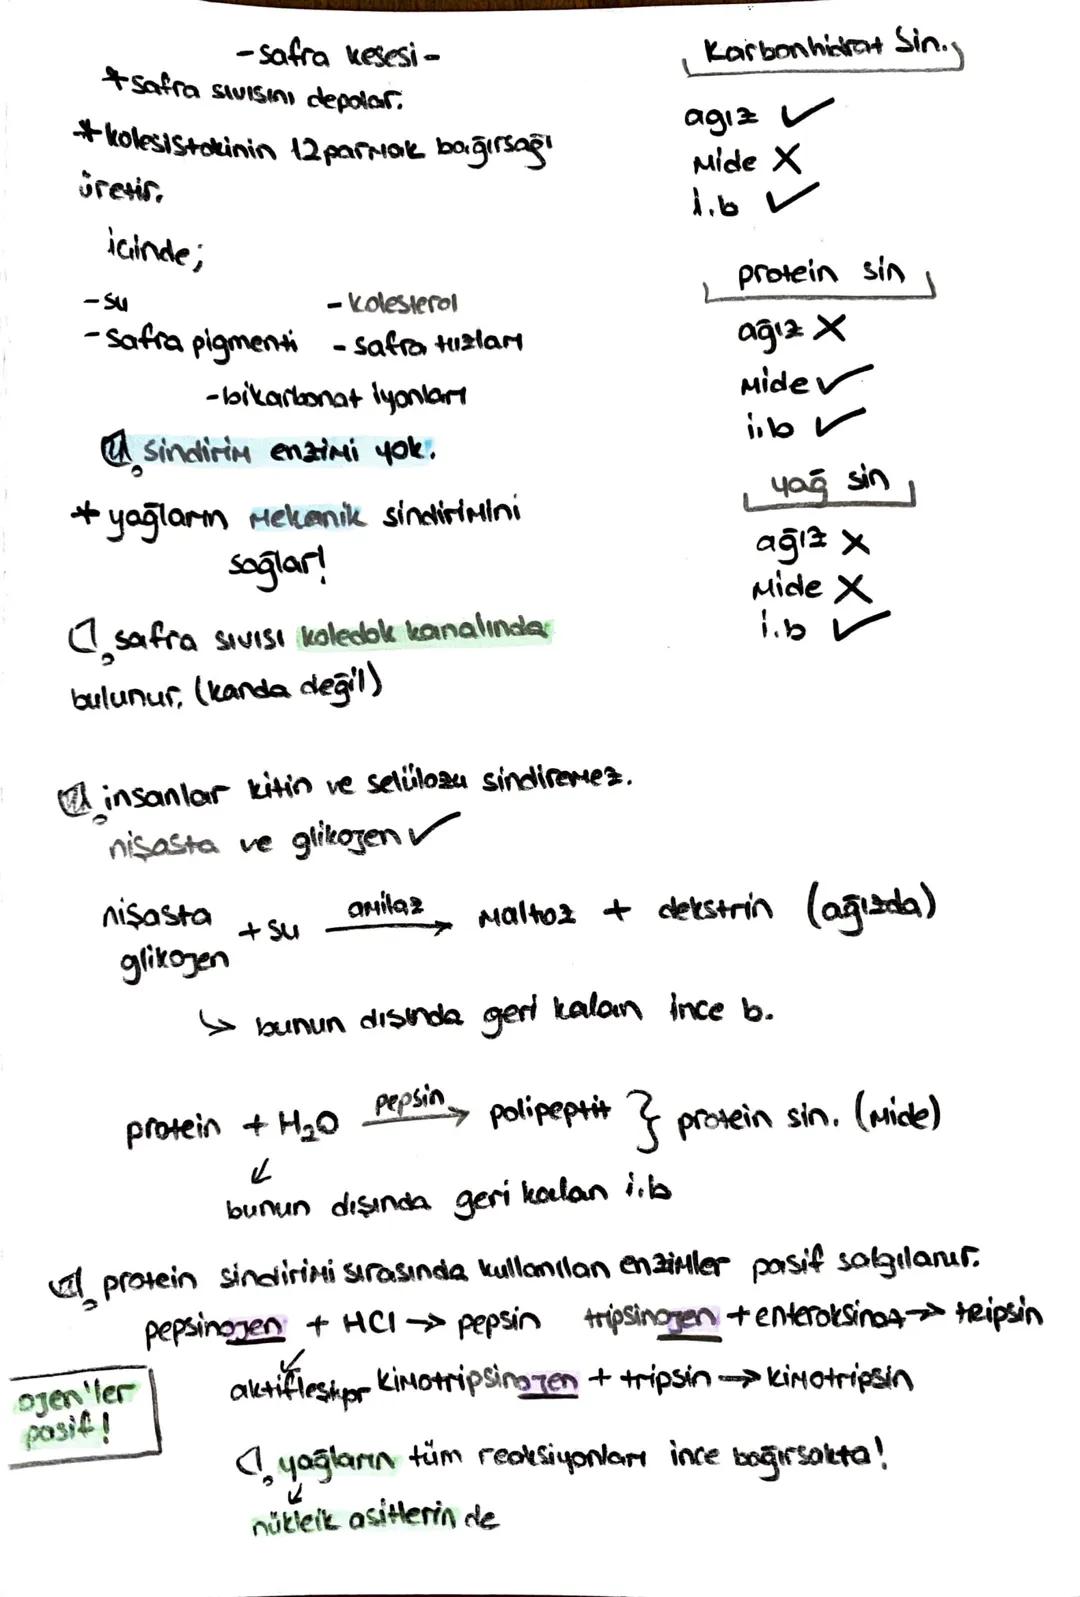 -safra kesesi-
*safra sıvısını depolar.
*kolesistokinin 12parmak bağırsağı
üretir.
içinde;
-su -kolesterol
-safra pigmenti -safra tuzları
-bikarbonat iyonları
sindirim enzimi yok.
*yağların mekanik sindirimini
sağlar!
safra sıvısı koledok kanalında
bulunur. (kanda değil)
Karbonhidrat Sin.
agız ✓
mide X
i.b ✓
protein sin
ağız X
mide ✓
i.b ✓
yağ sin
ağız X
mide X
i.b ✓
insanlar kitin ve selülozu sindiremez.
nişasta ve glikojen ✓
nişasta
glikojen + su amilaz → maltoz + dekstrin (ağızda)
↳ bunun dışında geri kalan ince b.
protein + H₂O pepsin → polipeptit } protein sin. (mide)
↙
bunun dışında geri kalan i.b
protein sindirimi sırasında kullanılan enzimler pasif salgılanır.
pepsinojen + HCl → pepsin tripsinojen + enteroksinaz → tripsin
aktifleşiyor kimotripsinojen + tripsin → kimotripsin
ojen'ler
pasif!
yağların tüm reaksiyonları ince bağırsakta!
↙
nükleik asitlerin de